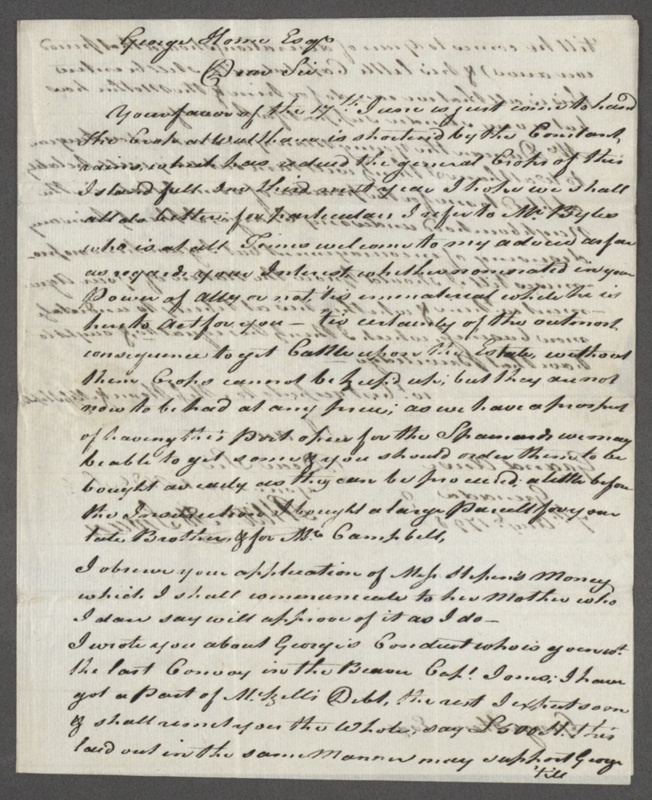 George Home Esqr
Dear Sir
Your favor of the 17th June is just come to hand
the Crop at Waltham is shortened by the Constant
rains, what has reduced the general Crops of this
Island full One third next year I hope we shall
all do better, for particulars I refer to Mr Byles
who is at all Times welcome to my advice as far
as regards your Interest whether nominated in your
Power of Atty or not, tis immaterial while he is
here to Act for you — tis certainly of the outmost
consequence to get Cattle upon the Estate, without
them Crops cannot be kept up; but they are not
now to be had at any price; as we have a prospect
of having this Port open for the Spaniards we may
be able to get some & you should order them to be
bought as early as they can be procured. a little before
the Insurrection I bought a large Parcell for your
late Brother, & for Mr Campbell,
I observe your application of Miss Money
which I shall communicate to her Mother who
I dare say will approve of it as I do —
I wrote you about George's Conduct who is gone wt
the last Convoy in the Beaver Capt. I have
got a Part of Debt, the rest I expect soon
& shall remit you the Whole, say £500 St this
laid out in the same Manner may support George
'till